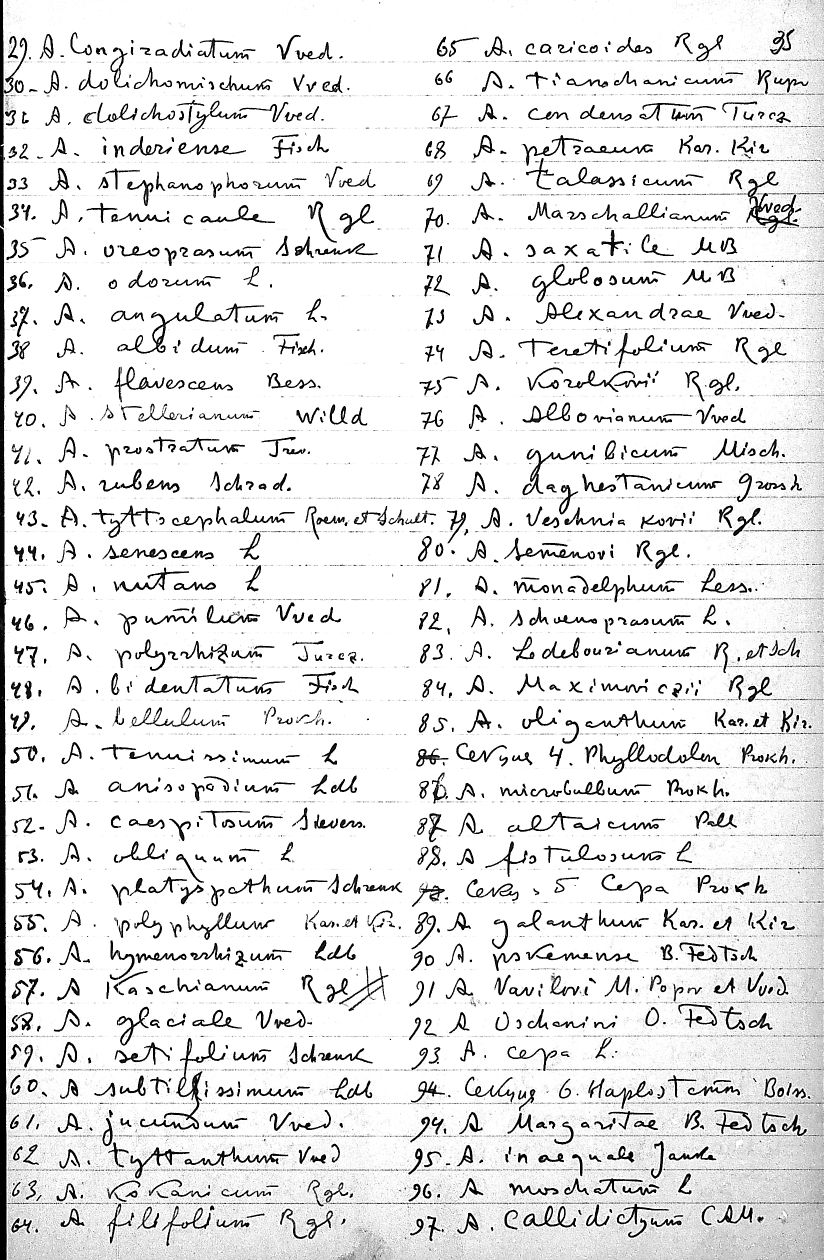 35
29. A. longiradiatum Vved.
30. A. dolichomischum Vved.
31 A. dolichostylum Vved.
32. A. inderiense Fisch
33 A. stephanophorum Vved
34. A. tenuicaule Rgl
35 A. oreoprasum Schrenk
36. A. odorum L.
37. A. angulatum L.
38 A. albidum Fisch.
39. A. flavescens Bess.
40. A. stellerianum Willd
41. A. prostratum Trev.
42. A. rubens Schrad.
43. A. tyttocephalum Roem. et Schult.
44. A. senescens L
45. A. nutans L
46. A. pumilum Vved
47. A. polyrrhizum Turcz.
48. A. bidentatum Fisch
49. A. bellulum Prokh.
50. A. tenuissimum L
51. A anisopodium Ldb
52. A. caespitosum Sievers.
53. A. obliquum L
54. A. platyspathum Schrenk
55. A. polyphyllum Kar. et Kir.
56. A. hymenorrhizum Ldb
57. A Kaschianum Rgl
58. A. glaciale Vved.
59. A. setifolium Schrenk
60. A subtilissimum Ldb
61. A. jucundum Vved.
62 A. tyttanthum Vved
63. A. Kokanicum Rgl.
64. A filifolium Rgl.
65 A. caricoides Rgl
66 A. tianschanicum Rupr
67 A. condensatum Turcz
68 A. petraeum Kar. Kir
69 A. talassicum Rgl
70. A. Marschallianum Vved.
71 A. saxatile MB
72 A. globosum MB
73 A. Alexandrae Vved.
74 A. Teretifolium Rgl
75 A. Korolkovii Rgl.
76 A. Albovianum Vved
77 A. gunibicum Misch.
78 A. daghestanicum Grossh
79. A. Veschniakovii Rgl.
80. A. Semenovi Rgl.
81. A. monadelphum Less.
82. A. schoenoprasum L.
83. A. Ledebourianum R. et Sch
84. A. Maximoviczii Rgl
85. A. oliganthum Kar. et Kir.
86. Секция 4. Phyllodolon Prokh.
86. A. microbulbum Prokh.
87 A altaicum Pall
88. A fistulosum L
Секц. 5 Cepa Prokh
89. A galanthum Kar. et Kir
90 A. pskemense B. Fedtsch
91 A Vavilovi M. Popov et Vved
92 A Oschanini O. Fedtsch
93. A. cepa L.
94. Секция 6. Haplostemum Boiss.
94. A Margaritae B. Fedtsch
95. A. inaequale Janka
96. A moschatum L
97. A. Callidictyum CAM.